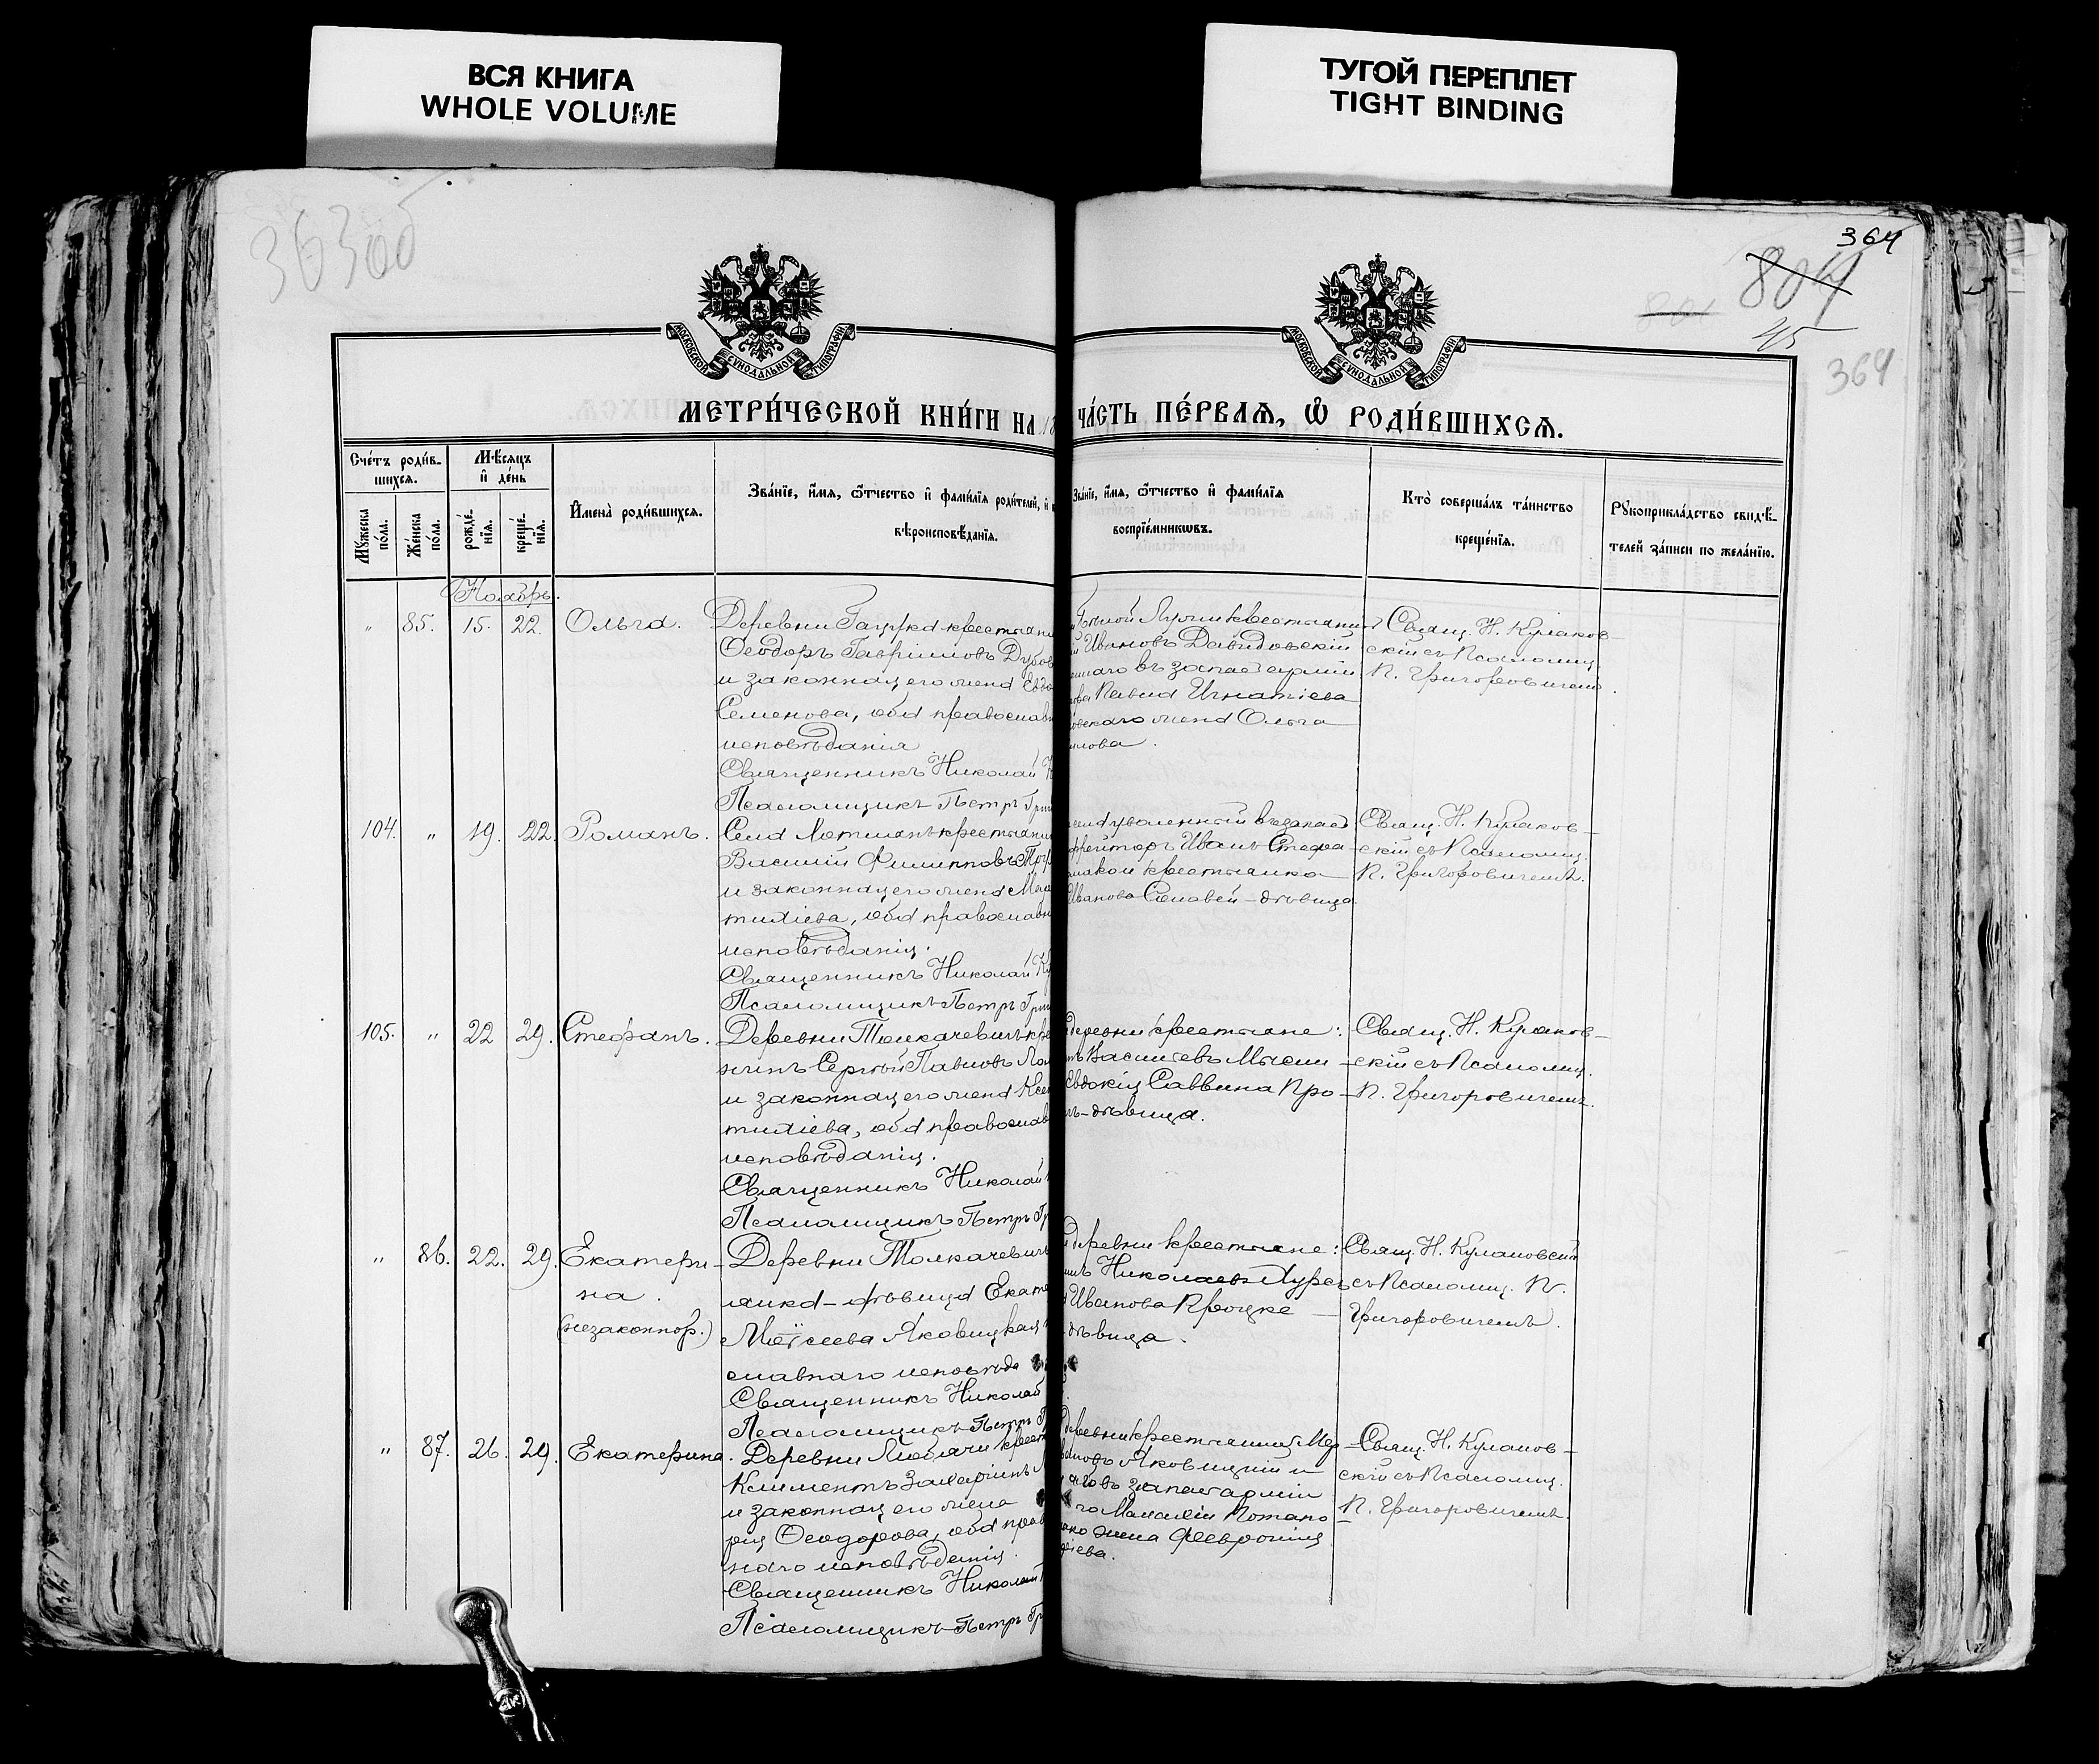 ВСЯ КНИГА
WHOLE VOLUME
ТУГОЙ ПЕРЕПЛЕТ
TIGHT BINDING
363об
364
804
45
364
МОСКОВСКОЙ СѴНОДАЛЬНОЙ ТИПОГРАФІИ
МОСКОВСКОЙ СѴНОДАЛЬНОЙ ТИПОГРАФІИ
МЕТРИ́ЧЕСКОЙ КНИ́ГИ НА 18
ЧА́СТЬ ПЕ́РВАѦ, Ѽ РОДИ́ВШИХСѦ.
Сче́тъ роди́в-
шихсѧ.
Мѣ́сяцъ
и҆ де́нь
Мꙋ́жеска по́ла.
Же́нска по́ла.
рожде́-нїѧ.
креще́-нїѧ.
И҆мена̀ роди́вшихсѧ.
Зва́нїе, и҆́мѧ, ѻ҆́тчество и҆ фами́лїѧ роди́телей, и҆
вѣроисповѣ́данїѧ.
Зва́нїе, и҆́мѧ, ѻ҆́тчество и҆ фами́лїѧ
воспрїе́мникѡвъ.
Кто̀ соверша́лъ та́инство
креще́нїѧ.
Рꙋкоприкла́дство свидѣ́-
телей за́писи по жела́нїю.
Ноябрь.
" 85. 15. 22. Ольга.
Деревни Гацука крестьяни
Ѳеодоръ Гавріиловъ Дубов
и законная его жена Евдо
Семенова, оба православн
исповѣданія.
Священникъ Николай К
Псаломщикъ Петръ Григ
Ивановъ Давидовскій
въ запасъ арміи
Павла Игнатіева
жена Ольга
Свящ. Н. Кулаков-
скій съ Псаломщ.
П. Григоровичемъ.
104. " 19. 22. Романъ.
Села крестьяни
Василій Филипповъ
и законная его жена
тиліева, оба православн
исповѣданія.
Священникъ Николай Ку
Псаломщикъ Петръ Григ
уволенный въ запасъ
ефрейторъ Иванъ Стефа
крестьянка
Иванова Соловей - дѣвица.
Свящ. Н. Кулаков-
скій съ Псаломщ.
П. Григоровичемъ.
105. " 22 29. Стефанъ.
Деревни Толкачевичъ кре
нинъ Сергѣй Павловъ
и законная его жена Ксе
тиліева, оба православ
исповѣданія.
Священникъ Николай
Псаломщикъ Петръ Гр
деревни крестьяне:
Василіевъ
Евдокія Саввина Про-
дѣвица.
Свящ. Н. Кулаков-
скій съ Псаломщ.
П. Григоровичемъ.
" 86. 22. 29. Екатери-
на.
(незаконнор.)
Деревни Толкачевичъ
янка - дѣвица Екате
Моѵсеева Яковицкая
славнаго исповѣда
Священникъ Николай
Псаломщикъ Петръ Г
деревни крестьяне:
Николаевъ
Иванова Процке
дѣвица.
Свящ. Н. Кулаковскій
съ Псаломщ. П.
Григоровичемъ.
" 87. 26. 29. Екатерина.
Деревни Любачи крест
Климентъ Захаріинъ
и законная его жена
рія Ѳеодорова, оба прав
наго исповѣданія.
Священникъ Николай
Псаломщикъ Петръ Гр
деревни крестьянинъ
Яковицкій и
запасъ арміи
жена Февронія
Свящ. Н. Кулаков-
скій съ Псаломщ.
П. Григоровичемъ.